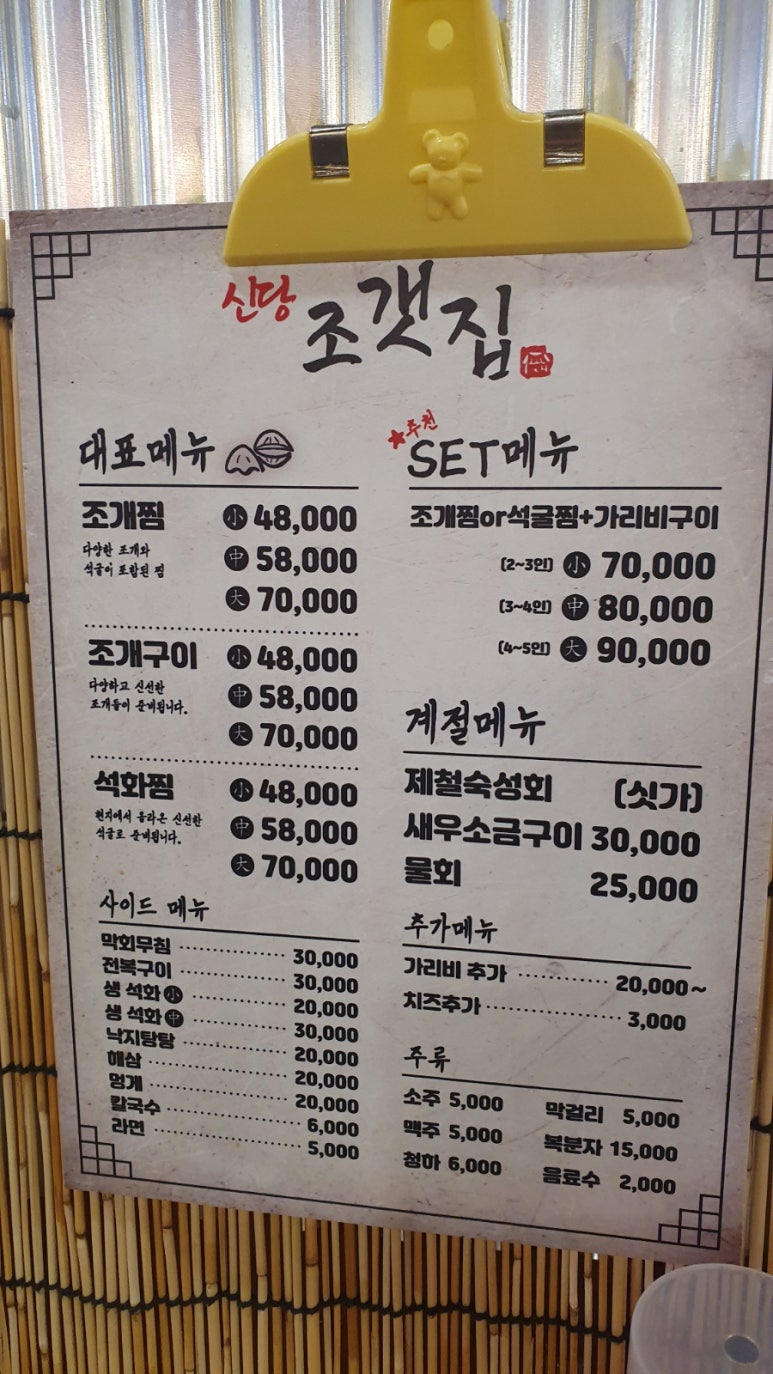 신당 조갯집
대표메뉴
조개찜 小 48,000
다양한 조개와
석굴이 포함된 찜
中 58,000
大 70,000
조개구이 小 48,000
다양하고 신선한
조개들이 준비됩니다.
中 58,000
大 70,000
석화찜 小 48,000
현지에서 올라온 신선한
석굴로 준비됩니다.
中 58,000
大 70,000
사이드 메뉴
막회무침 30,000
전복구이 30,000
생 석화 小 20,000
생 석화 中 30,000
낙지탕탕 20,000
해삼 20,000
멍게 20,000
칼국수 6,000
라면 5,000
★추천
SET메뉴
조개찜or석굴찜+가리비구이
(2~3인) 小 70,000
(3~4인) 中 80,000
(4~5인) 大 90,000
계절메뉴
제철숙성회 (싯가)
새우소금구이 30,000
물회 25,000
추가메뉴
가리비 추가 20,000~
치즈추가 3,000
주류
소주 5,000 막걸리 5,000
맥주 5,000 복분자 15,000
청하 6,000 음료수 2,000